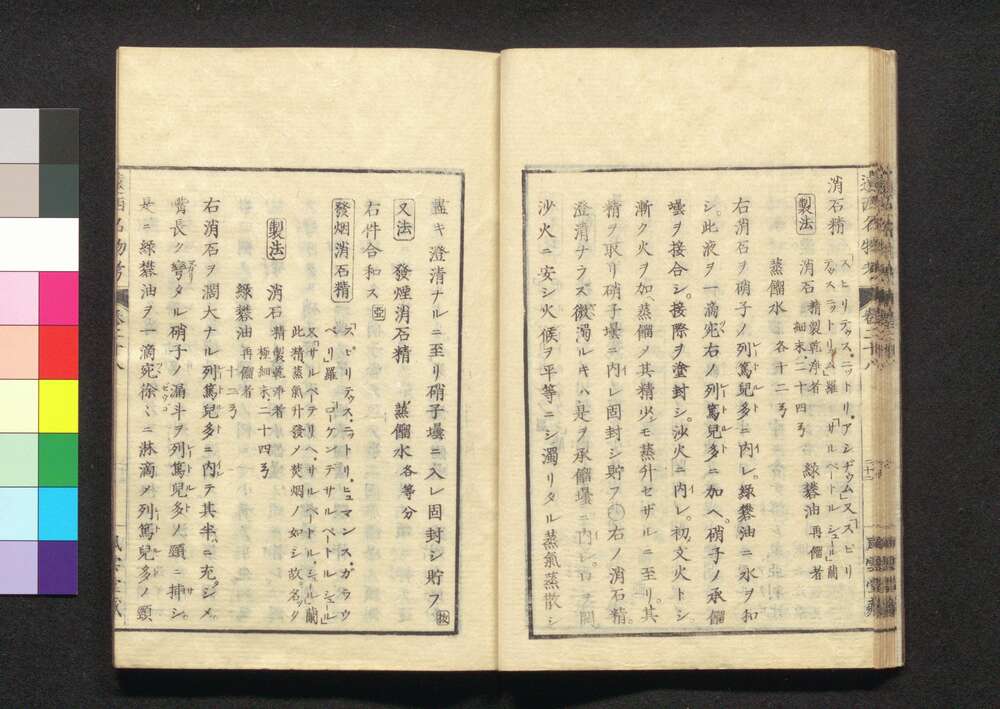 消石精 「スピリテュス・ニットリ・アシヂゥム」又「スピリ
テュス・ニトリ」羅 「サルペートル シュール」蘭
製法 消石 精製乾浄者
細末二十四ヲ 緑礬油 再餾者
蒸餾水 各十二ヲ
右消石ヲ硝子ノ列篤兒多ニ内レ緑礬油ニ水ヲ和
シ。此液ヲ一滴宛右ノ列篤兒多ニ加ヘ。硝子ノ承餾
壜ヲ接合シ。接際ヲ塗封シ。沙火ニ内レ。初文火トシ
漸ク火ヲ加蒸餾ノ其精少モ蒸升セザルニ至リ。其
精ヲ取リ硝子壜ニ内レ固封シ貯フ 右ノ消石精。
澄清ナラス微濁ルキハ是ヲ承餾壜ニ内レ。口ヲ開
沙火ニ安シ火候ヲ平等ニシ濁リタル蒸氣蒸散シ
盡キ澄清ナルニ至リ硝子壜ニ入レ固封シ貯フ 扱
又法 發煙消石精 蒸餾水 各等分
右件合和ス
發烟消石精 「スピリテュス・ニトリ・ヒュマンス・ガラウ
ベリ」羅 「ローケンデ サルペートル シュール」
又「サルペテリヘ・サルペートル・シュール」蘭
此精蒸氣升發ノ焚烟ノ如シ故名ック
製法 消石 精製乾浄者
極細末二十四ヲ
緑礬油 再餾者
十二ヲ
右消石ヲ濶大ナル列篤兒多ニ内テ其半ニ充シメ。
嘴長ク彎タル硝子ノ漏斗ヲ列篤兒多ノ頸ニ挿シ。
是ニ緑礬油ヲ一滴宛徐々ニ淋滴ノ列篤兒多ノ頸